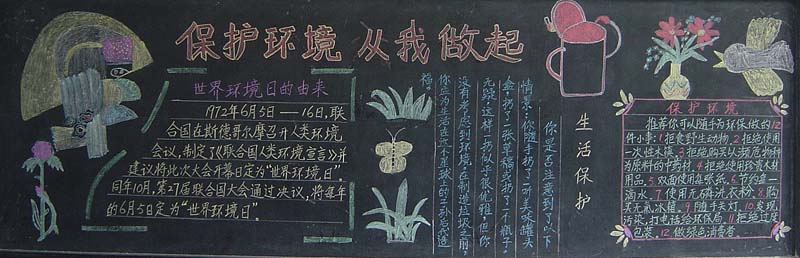 保护环境 从我做起
世界环境日的由来
1972年6月5日——16日,联
合国在斯德哥尔摩召开人类环境
会议,制定了《联合国人类环境宣言》并
建议将此次大会开幕日定为“世界环境日”。
同年10月,第27届联合国大会通过决议,将每年
的6月5日定为“世界环境日”。
你是否注意到了以下
情景:你随手扔了一听美味罐头
盒,扔了一张草稿,或扔了一个瓶子。
无疑,这样一扔似乎很优雅,但你
没有考虑到环境,在制造垃圾之前,
你应为生活在这个星球上的子孙后代造
福。
生活保护
保护环境
推荐你可以随手为环保做的12
件小事:1.拒食野生动物。2.拒绝使用
一次性木筷。3.拒绝购买以濒危物种
为原料的中药材。4.拒绝使用珍贵木材
用品。5.双面使用草稿纸。6.节约每一
滴水。7.使用无磷洗衣粉。8.购
买无氟冰箱。9.随手关灯。10.发现
污染,打电话给环保局。11.拒绝过度
包装。12.做绿色消费者。